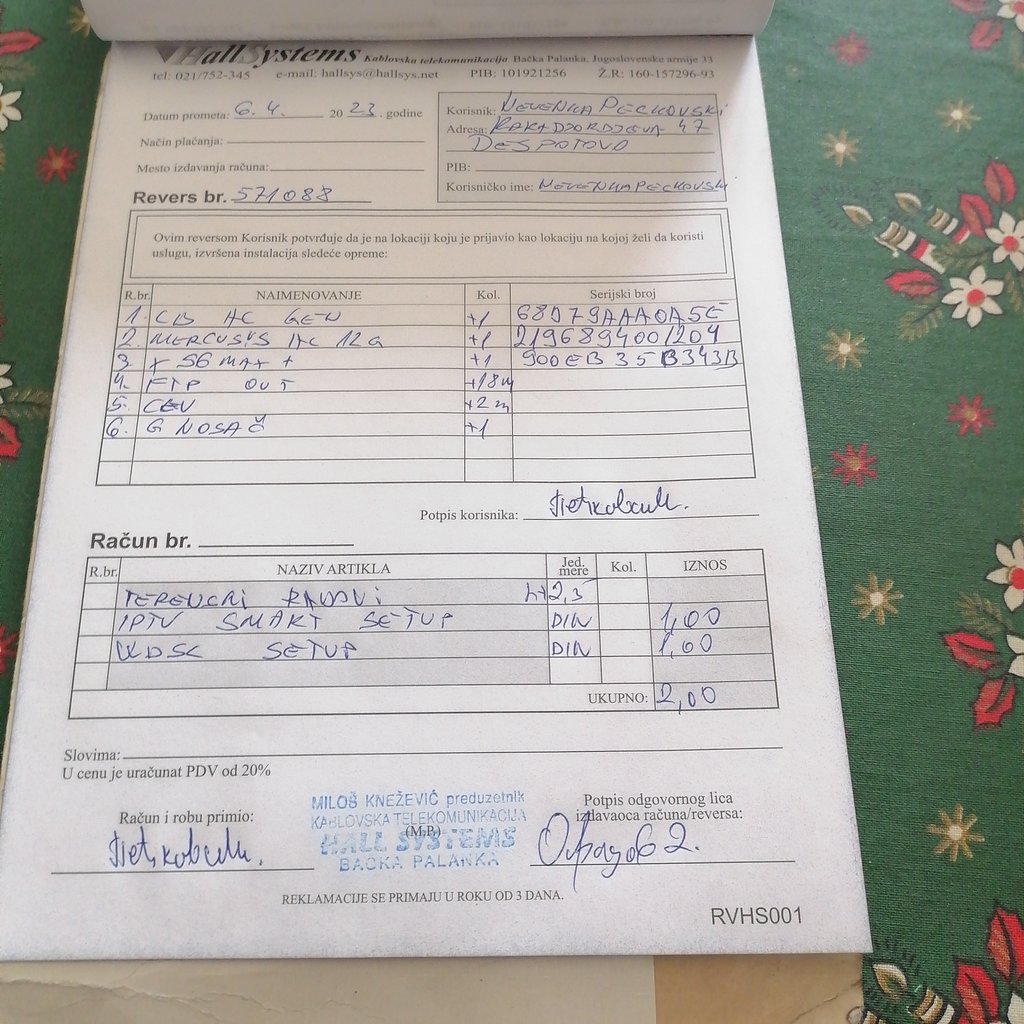 HallSystems Kablovska telekomunikacija Bačka Palanka, Jugoslovenske armije 33
tel: 021/752-345 e-mail: hallsys@hallsys.net PIB: 101921256 Ž.R: 160-157296-93
Datum prometa: 6.4. 2023. godine
Način plaćanja:
Mesto izdavanja računa:
Revers br. 571088
Korisnik: NEVENKA PECKOVSKI
Adresa: KARADJORDJEVA 47
DESPOTOVO
PIB:
Korisničko ime: NEVENKAPECKOVSKI
Ovim reversom Korisnik potvrđuje da je na lokaciji koju je prijavio kao lokaciju na kojoj želi da koristi
uslugu, izvršena instalacija sledeće opreme:
R.br. NAIMENOVANJE Kol. Serijski broj
1. AC GEN +1 68D79AAA0A5E
2. MERCUSYS AC 12G +1 2196894001204
3. X S6 MAX + +1 900EB35B343B
4. FTP OUT +18m
5. CEV +2m
6. G NOSAČ +1
Potpis korisnika:
Račun br.
R.br. NAZIV ARTIKLA Jed. mere Kol. IZNOS
TERENCKI RADOVI h+2,5
IPTV SMART SETUP DIN 1,00
SETUP DIN 1,00
UKUPNO: 2,00
Slovima:
U cenu je uračunat PDV od 20%
Račun i robu primio:
MILOŠ KNEŽEVIĆ preduzetnik
KABLOVSKA TELEKOMUNIKACIJA
(M.P.)
HALL SYSTEMS
BAČKA PALANKA
Potpis odgovornog lica
izdavaoca računa/reversa:
REKLAMACIJE SE PRIMAJU U ROKU OD 3 DANA.
RVHS001